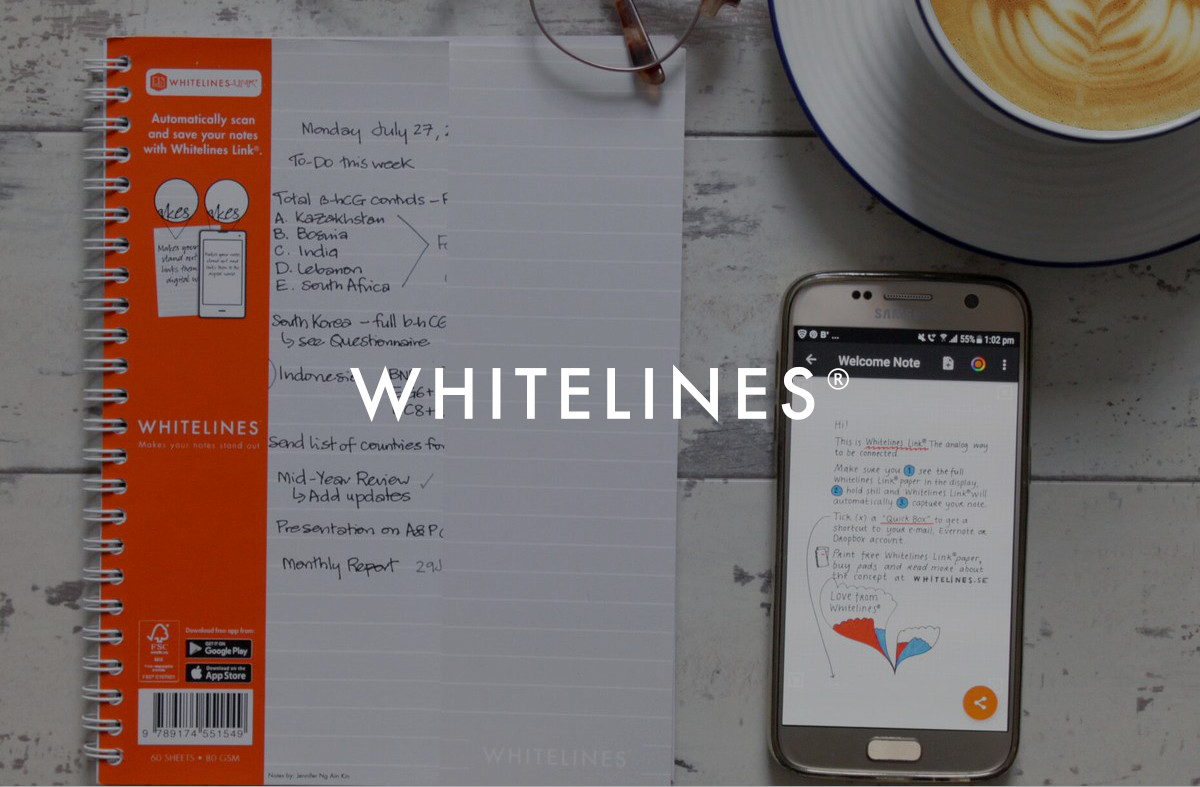 WHITELINES
Automatically scan
and save your notes
with Whitelines Link®.
WHITELINES
Makes your notes stand out
Download free app from:
FSC
GET IT ON
Google Play
Download on the
App Store
9 789174 551549
60 SHEETS • 80 GSM
Monday July 27,
To-Do this week
Total B-hCG controls –
A. Kazakhstan
B. Bosnia
C. India
D. Lebanon
E. South Africa
South Korea – full b-hCG
↳ see Questionnaire
Indonesia
C8+
Send list of countries for
Mid-Year Review ✓
↳ Add updates
Presentation on A&P
Monthly Report
Notes by: Jennifer Ng Ain Kin
WHITELINES
WHITELINES®
SAMSUNG
55% 1:02 pm
Welcome Note
Hi!
This is Whitelines Link® The analog way
to be connected
Make sure you 1 see the full
Whitelines Link® paper in the display,
2 hold still and Whitelines Link® will
automatically 3 capture your note.
Tick (x) a "Quick Box" to get a
shortcut to your e-mail, Evernote or
Dropbox account.
Print free Whitelines Link® paper,
buy pads and read more about
the concept at WHITELINES.SE
Love from
Whitelines®